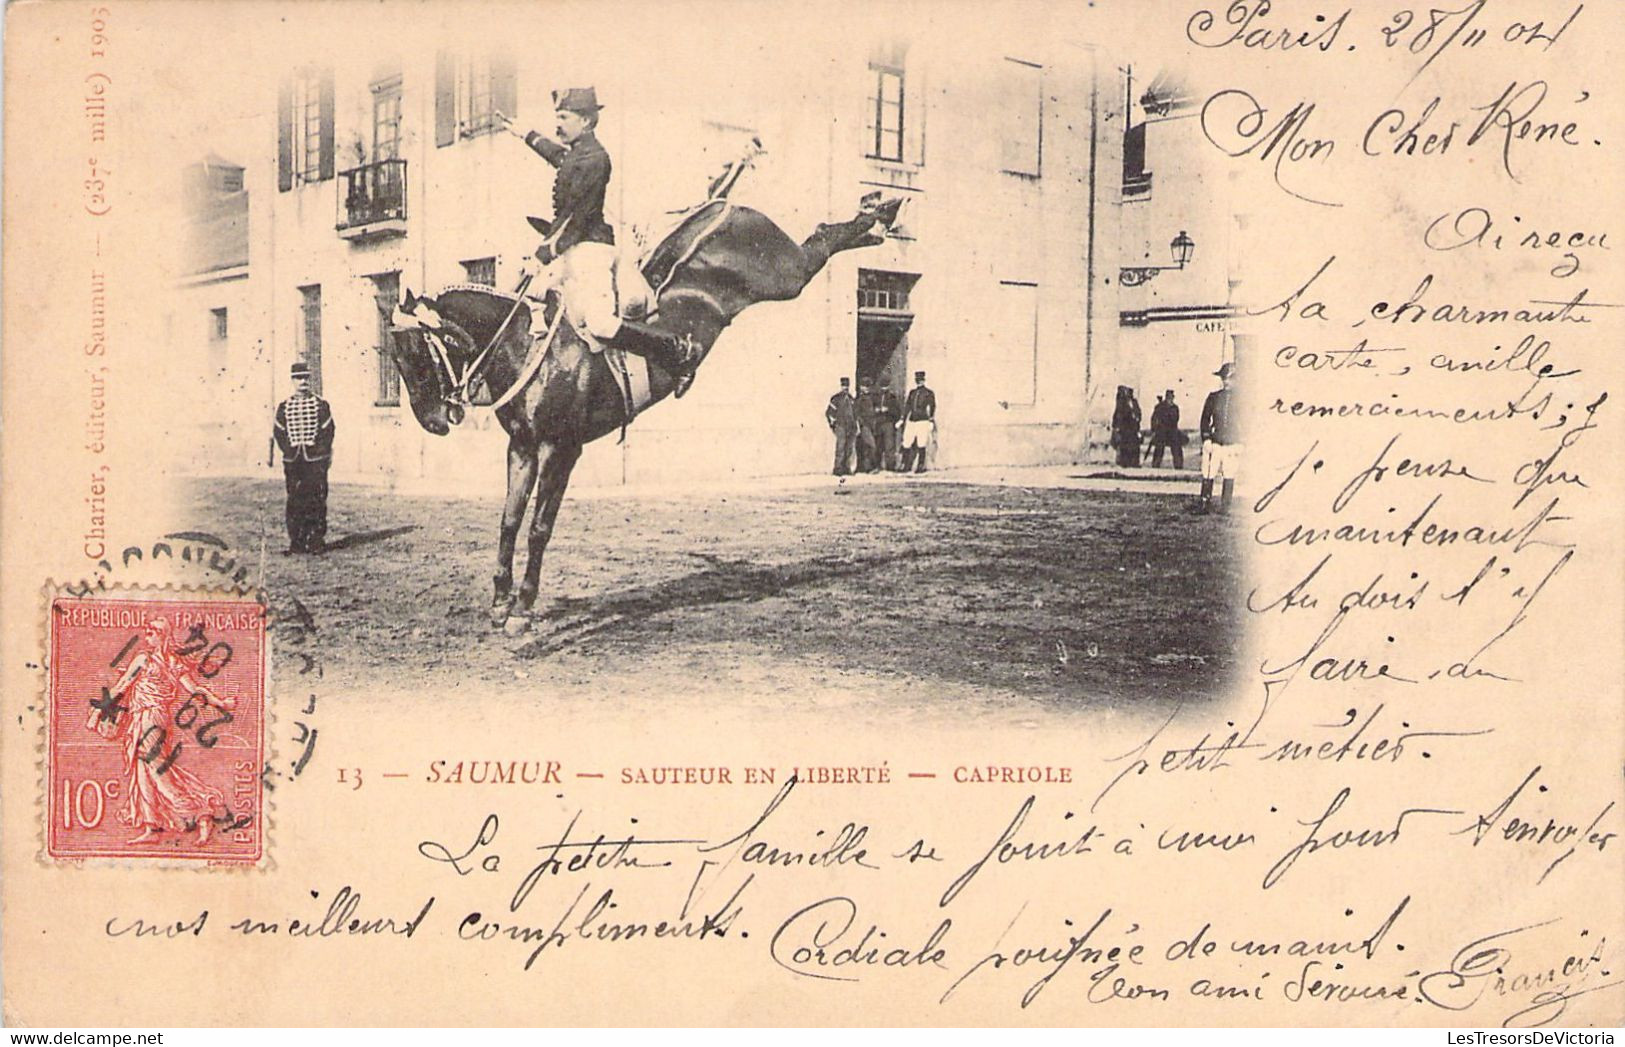 Charier, éditeur, Saumur — (237e mille) 1903
Paris. 28/11 04
Mon Cher René.
Ai reçu
ta charmante
carte, mille
remerciements ;
je pense que
maintenant
tu dois t'y
faire, au
petit métier.
La petite famille se joint à moi pour t'envoyer
nos meilleurs compliments. Cordiale poignée de mains.
Ton ami dévoué. Francis.
CAFE
RÉPUBLIQUE FRANÇAISE
10c
POSTES
10
29
-1
04
13 — SAUMUR — SAUTEUR EN LIBERTÉ — CAPRIOLE
LesTresorsDeVictoria